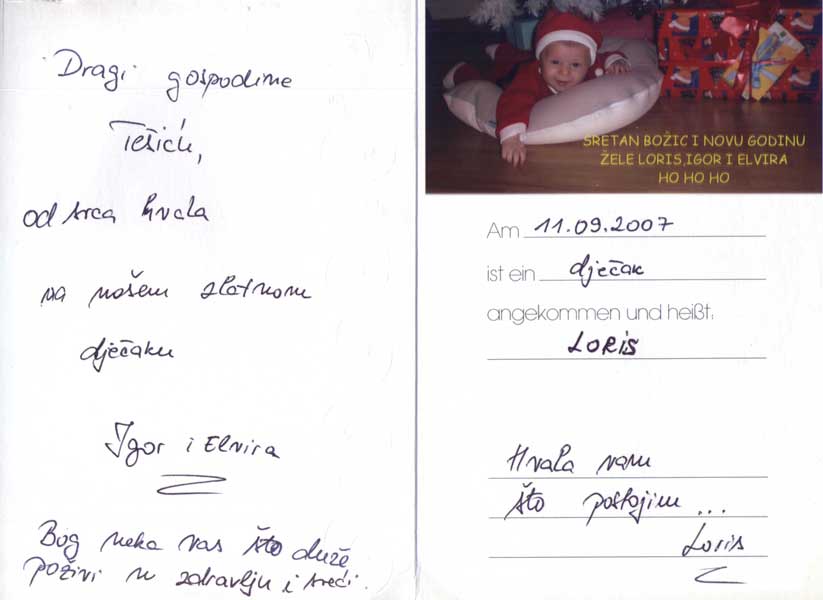 Dragi gospodine
Tešiću,
od srca hvala
na našem zlatnom
dječaku
Igor i Elvira
Bog neka vas što duže
poživi u zdravlju i sreći.
SRETAN BOŽIC I NOVU GODINU
ŽELE LORIS,IGOR I ELVIRA
HO HO HO
Am 11.09.2007
ist ein dječak
angekommen und heißt:
LORIS
Hvala vam
što postojim...
Loris